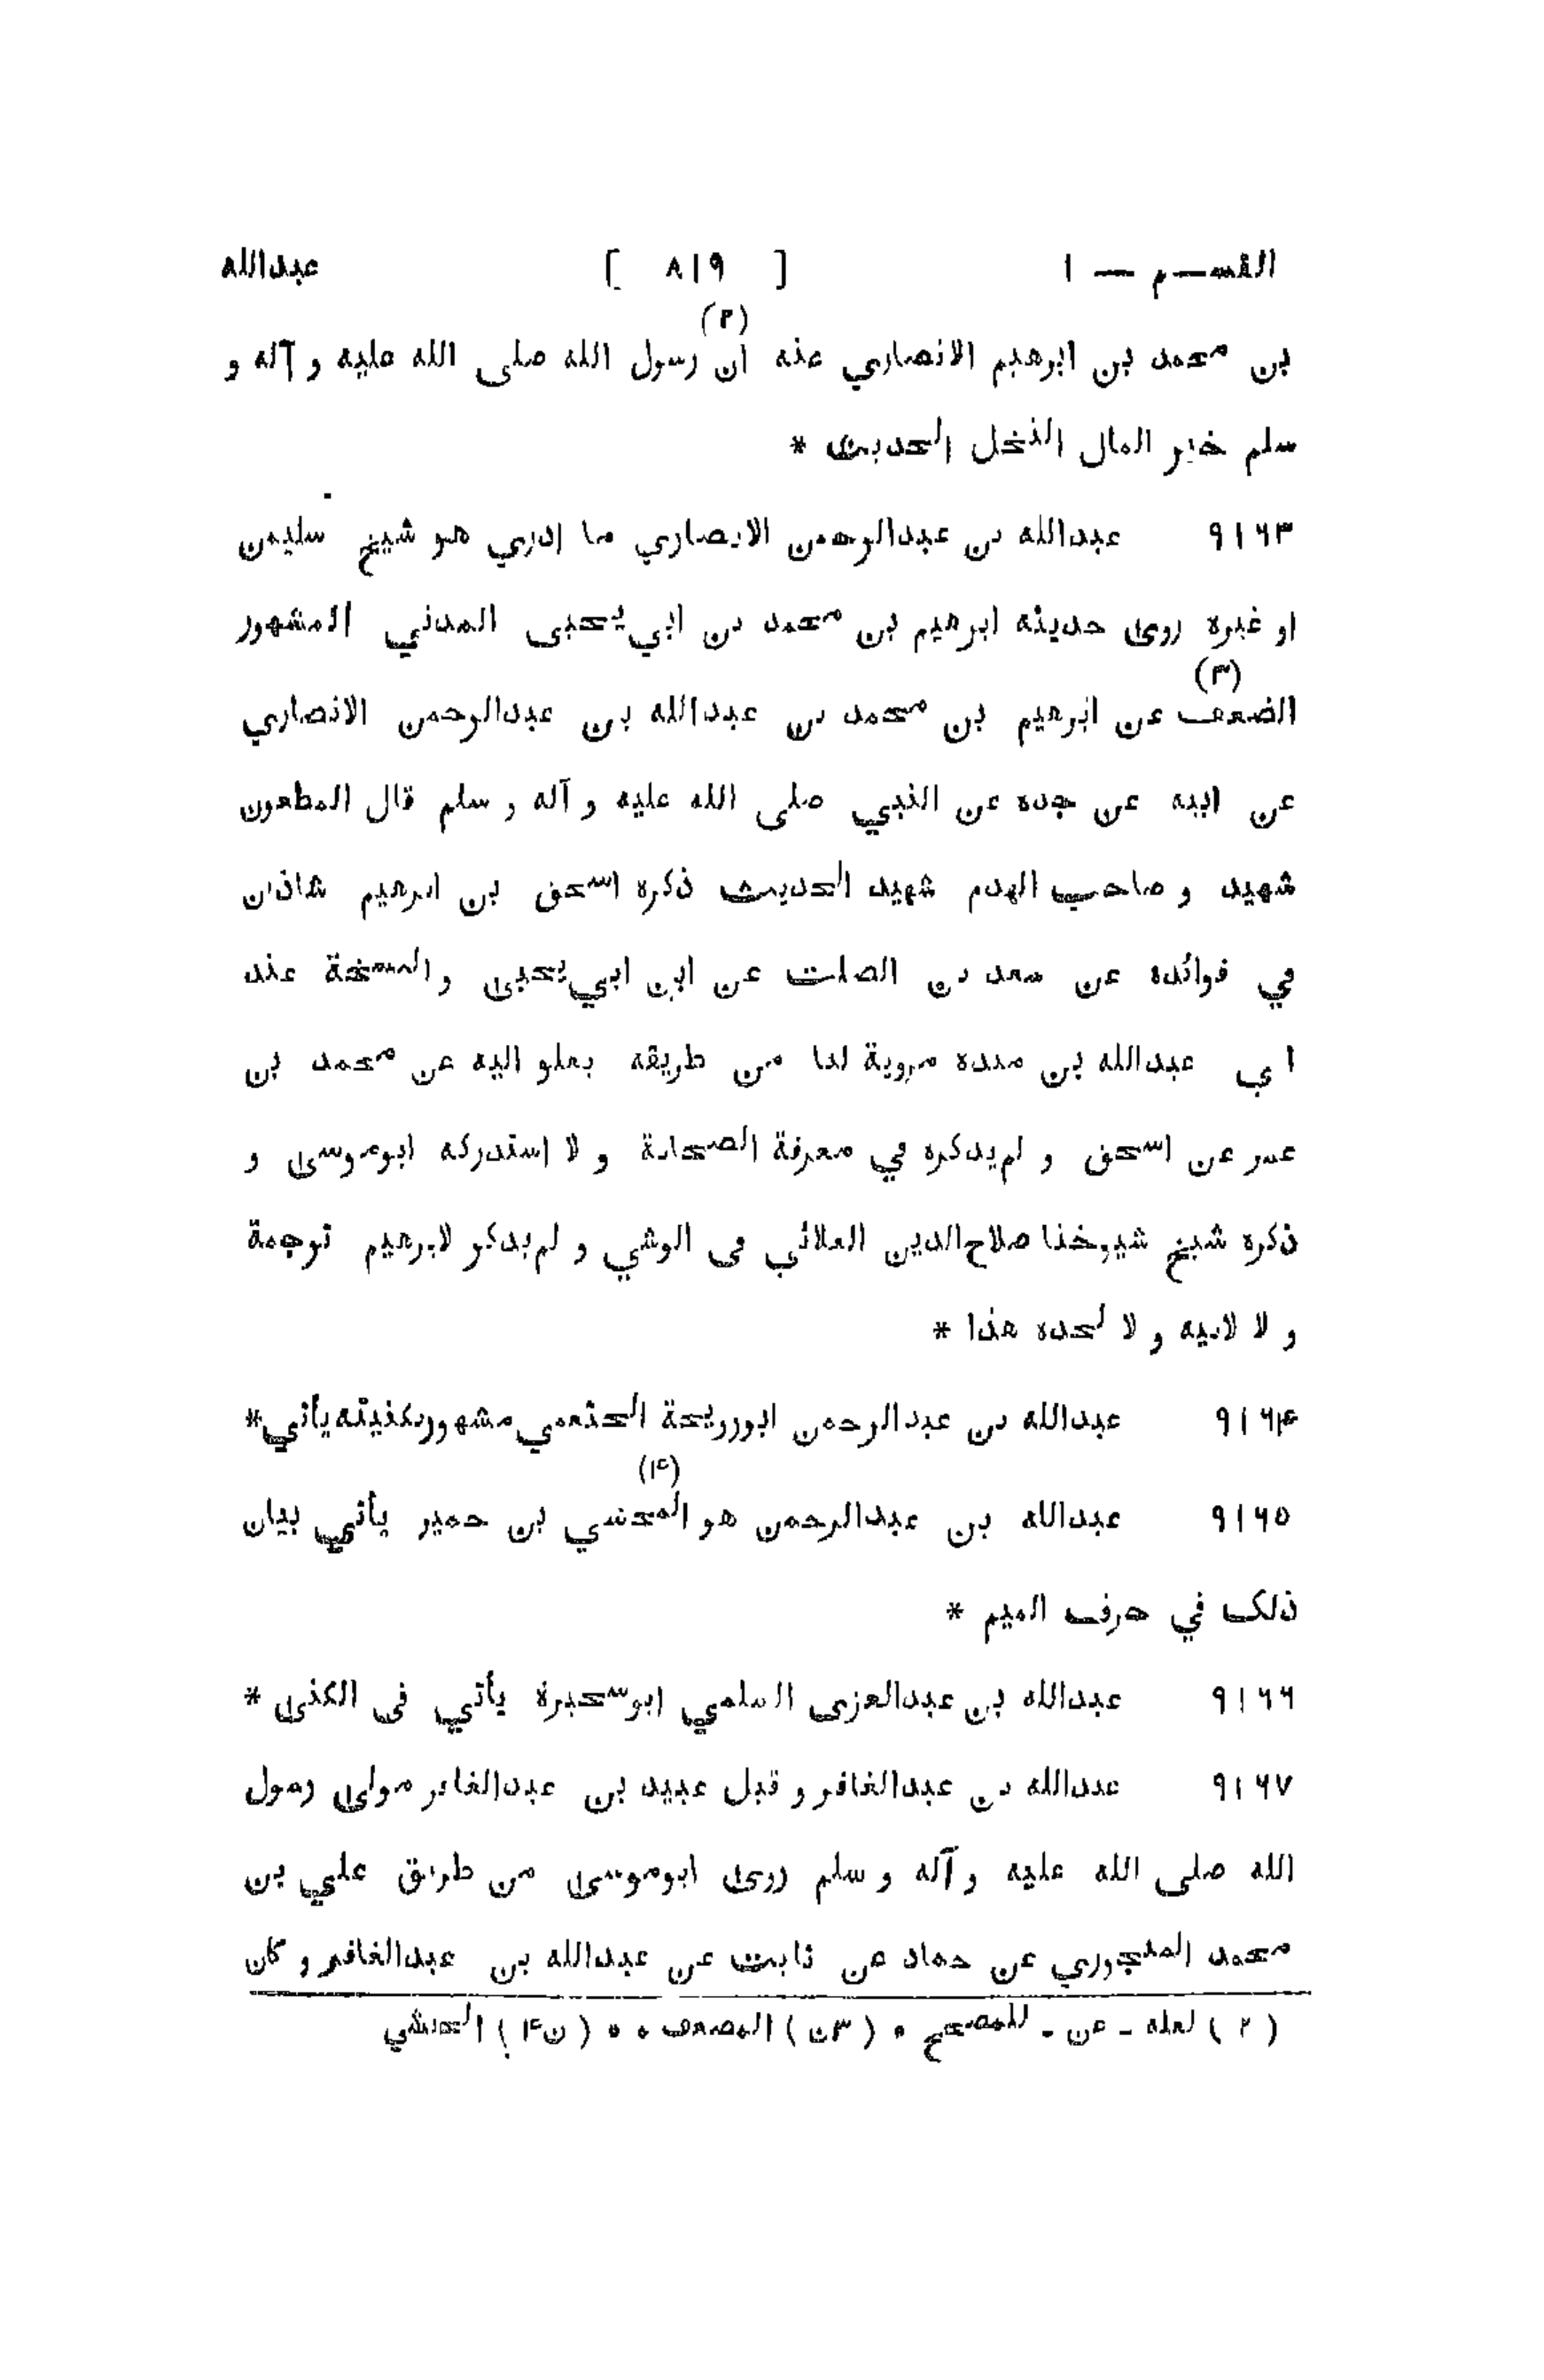 القسم — ١ [ ٨١٩ ] عبدالله
(٢)
بن محمد بن ابرهيم الانصاري عنه ان رسول الله صلى الله عليه و آله و
سلم خير المال النخل الحديث *
٩١٦٣ عبدالله بن عبدالرحمن الانصاري ما ادري هو شيخ سليمن
او غيره روى حديثه ابرهيم بن محمد بن ابي يحيى المدني المشهور
(٣)
الضعيف عن ابرهيم بن محمد بن عبدالله بن عبدالرحمن الانصاري
عن ابيه عن جده عن النبي صلى الله عليه و آله و سلم قال المطعون
شهيد و صاحب الهدم شهيد الحديث ذكره اسحق بن ابرهيم شاذان
في فوائده عن سعد بن الصلت عن ابن ابي يحيى و النسخة عند
ابي عبدالله بن منده مروية لنا من طريقه بعلو اليه عن محمد بن
عمر عن اسحق و لم يذكره في معرفة الصحابة و لا استدركه ابوموسى و
ذكره شيخ شيوخنا صلاح الدين العلائي في الوشي و لم يذكر لابرهيم ترجمة
و لا لابيه و لا لجده هذا *
٩١٦۴ عبدالله بن عبدالرحمن ابورويحة الخثعمي مشهور بكنيته يأتي *
(۴)
٩١٦٥ عبدالله بن عبدالرحمن هو المخشي بن حمير يأتي بيان
ذلك في حرف الميم *
٩١٦٦ عبدالله بن عبدالعزى السلمي ابوسخبرة يأتي فى الكنى *
٩١٦٧ عبدالله بن عبدالغافر و قيل عبيد بن عبدالغافر مولى رسول
الله صلى الله عليه و آله و سلم روى ابوموسى من طريق علي بن
محمد المنجوري عن حماد عن ثابت عن عبدالله بن عبدالغافر و كان
( ٢ ) لعله - عن - للمصحح * ( ٣ن ) المضعف * * ( ن۴ ) الحبشي